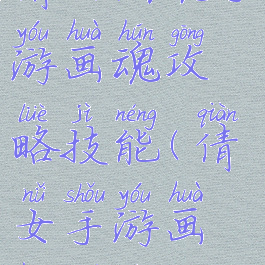 yóu huà hún gōng
游画魂攻
lüè jì néng qiàn
略技能(倩
nǚ shǒu yóu huà
女手游画